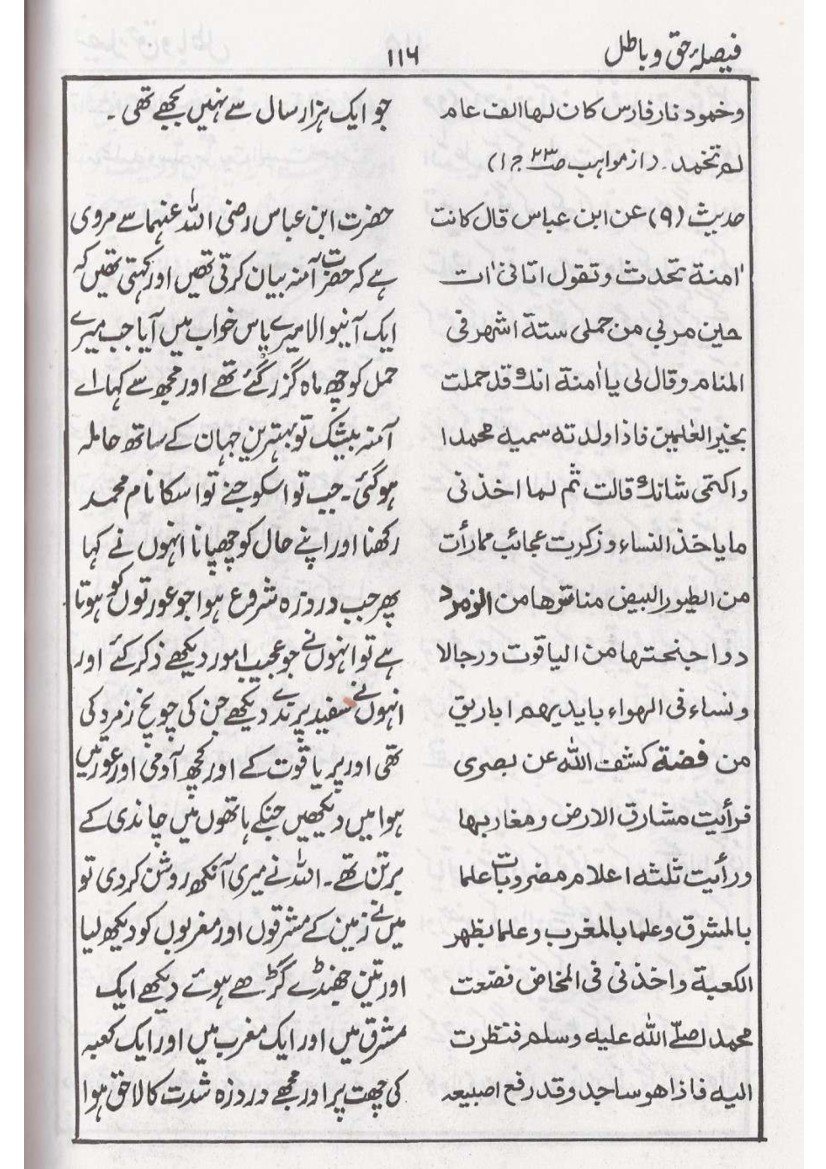 فیصلۂ حق و باطل
۱۱۶
وخمود نار فارس کان لہا الف عام
لم تخمد ۔ (از مواہب ص۲۳ ج۱)
حدیث (۹) عن ابن عباس قال کانت
اٰمنة تحدث وتقول اتانی اٰت
حین مر بی من حملی ستة اشہر فی
المنام وقال لی یا اٰمنة انک قد حملت
بخیر العٰلمین فاذا ولدته سمیه محمدا
واکتمی شانک قالت ثم لما اخذنی
ما یاخذ النساء وذکرت عجائب ممارأت
من الطیور البیض مناقرها من الزمرد
دوا جنحتہا من الیاقوت ورجالا
ونساء فی الہواء بایدیہم اباریق
من فضة کشف اللہ عن بصری
فرأیت مشارق الارض ومغاربہا
ورأیت ثلثه اعلام مضروبات علما
بالمشرق وعلما بالمغرب وعلما بظہر
الکعبة واخذنی فی المخاض فضعت
محمدا صلے اللہ علیه وسلم فنظرت
الیه فاذا هو ساجد وقد رفع اصبیعه
جو ایک ہزار سال سے نہیں بجھے تھی ۔
حضرت ابن عباس رضی اللہ عنہما سے مروی
ہے کہ حضرت آمنہ بیان کرتی تھیں اور کہتی تھیں کہ
ایک آنیوالا میرے پاس خواب میں آیا جب میرے
حمل کو چھ ماہ گزر گئے تھے اور مجھ سے کہا اے
آمنہ بیشک تو بہترین جہان کے ساتھ حاملہ
ہو گئی ۔ جب تو اسکو جنے تو اسکا نام محمد
رکھنا اور اپنے حال کو چھپانا انہوں نے کہا
پھر جب دردزہ شروع ہوا جو عورتوں کو ہوتا
ہے تو انہوں نے جو عجیب امور دیکھے ذکر کئے اور
انہوں نے سفید پرندے دیکھے جن کی چونچ زمرد کی
تھی اور پر یاقوت کے اور کچھ آدمی اور عورتیں
ہوا میں دیکھیں جنکے ہاتھوں میں چاندی کے
برتن تھے ۔ اللہ نے میری آنکھ روشن کر دی تو
میں نے زمین کے مشرقوں اور مغربوں کو دیکھ لیا
اور تین جھنڈے گڑھے ہوئے دیکھے ایک
مشرق میں اور ایک مغرب میں اور ایک کعبہ
کی چھت پر اور مجھے دردزہ شدت کا لاحق ہوا